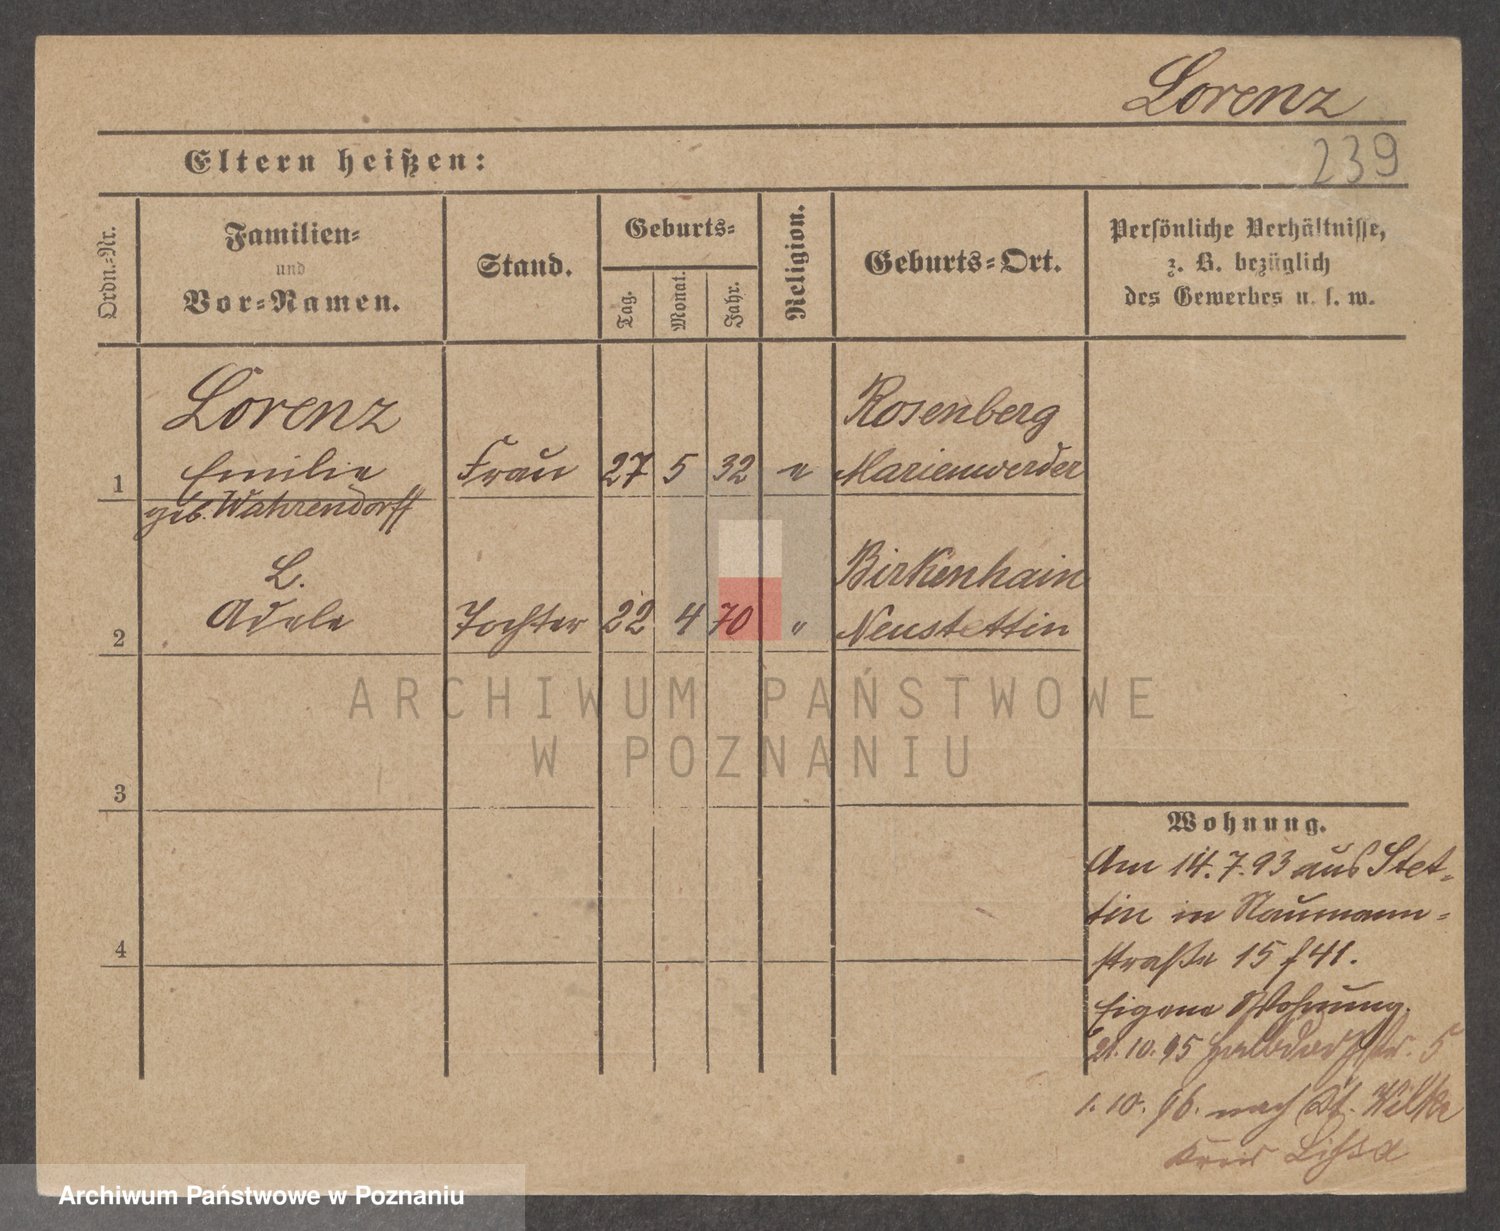 Lorenz
239
Eltern heißen:
Ordn.-Nr.
Familien-
und
Vor-Namen.
Stand.
Geburts-
Tag.
Monat.
Jahr.
Religion.
Geburts-Ort.
Persönliche Verhältnisse,
z. B. bezüglich
des Gewerbes u. s. w.
Lorenz
Rosenberg
1 Emilie Frau 27 5 32 e Marienwerder
geb. Wahrendorff
L. Birkenhain
2 Adele Tochter 22 4 70 " Neustettin
ARCHIWUM PAŃSTWOWE
W POZNANIU
3
4
Wohnung.
Am 14.7.93 aus Stet-
tin in Naumann-
straße 15 f 41.
Eigene Wohnung.
21.10.95 Halbdorfstr. 5
1.10.96. nach Wilke
Kreis Lissa
Archiwum Państwowe w Poznaniu